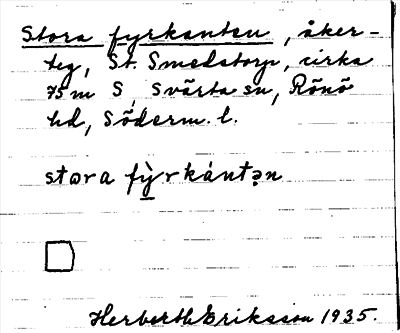 Stora fyrkanten, åker-
teg, St. Smedstorp, cirka
75 m S, Svärta sn, Rönö
hd, Söderm. l.
stora fỳrkántən
Herberth Eriksson 1935.